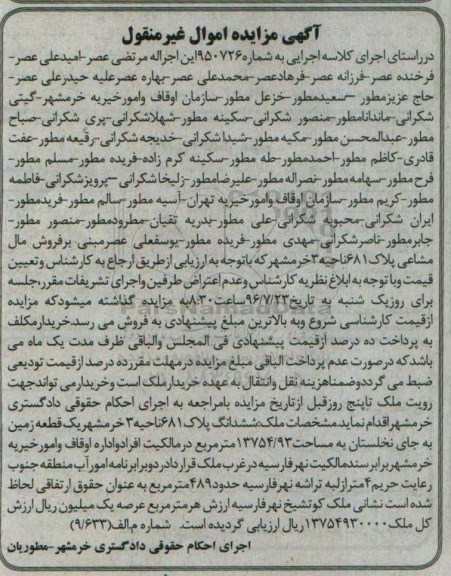 آگهی مزایده اموال غیرمنقول
درراستای اجرای کلاسه اجرایی به شماره۹۵۰۷۲۶این اجراله مرتضی عصر-امیدعلی عصر-
فرخنده عصر-فرزانه عصر-فرهادعصر-محمدعلی عصر-بهاره عصرعلیه حیدرعلی عصر-
حاج عزیزمطور –سعیدمطور-خزعل مطور-سازمان اوقاف وامورخیریه خرمشهر-گیتی
شکرانی-ماندانامطور-منصور شکرانی-سکینه مطور-شهلاشکرانی-پری شکرانی-صباح
مطور-عبدالمحسن مطور-مکیه مطور-شیدا شکرانی-خدیجه شکرانی-رفیعه مطور-عفت
قادری-کاظم مطور-احمدمطور-طه مطور-سکینه کرم زاده-فریده مطور-مسلم مطور-
فرح مطور-سهامه مطور-نصراله مطور-علیرضامطور-زلیخاشکرانی–پرویزشکرانی-فاطمه
مطور-کریم مطور-سازمان اوقاف وامورخیریه تهران-آسیه مطور-سالم مطور-فریدمطور-
ایران شکرانی-محبوبه شکرانی-علی مطور-بدریه تقیان-مطرودمطور-منصور مطور-
جابرمطور-ناصرشکرانی-مهدی مطور-فریده مطور-یوسفعلی عصرمبنی برفروش مال
مشاعی پلاک۶۸۱ناحیه۳خرمشهرکه باتوجه به ارزیابی ازطریق ارجاع به کارشناس وتعیین
قیمت وبا توجه به ابلاغ نظریه کارشناس وعدم اعتراض طرفین واجرای تشریفات مقرر،جلسه
برای روزیک شنبه به تاریخ۹۶/۷/۲۳ساعت۸:۳۰به مزایده گذاشته میشودکه مزایده
ازقیمت کارشناسی شروع وبه بالاترین مبلغ پیشنهادی به فروش می رسد.خریدارمکلف
به پرداخت ده درصد ازقیمت پیشنهادی فی المجلس والباقی ظرف مدت یک ماه می
باشدکه درصورت عدم پرداخت الباقی مبلغ مزایده درمهلت مقررده درصد ازقیمت تودیعی
ضبط می گرددوضمناهزینه نقل وانتقال به عهده خریدارملک است وخریدارمی تواندجهت
رویت ملک تاپنج روزقبل ازتاریخ مزایده بامراجعه به اجرای احکام حقوقی دادگستری
خرمشهراقدام نماید.مشخصات ملک:ششدانگ پلاک۶۸۱ناحیه۳خرمشهریک قطعه زمین
به جای نخلستان به مساحت۱۳۷۵۴/۹۳مترمربع درمالکیت افرادواداره اوقاف وامورخیریه
خرمشهربرابرسندمالکیت نهرفارسیه درغرب ملک قرارداردوبرابرنامه امورآب منطقه جنوب
رعایت حریم۴مترازلبه تراشه نهرفارسیه حدود۴۸۹مترمربع به عنوان حقوق ارتفاقی لحاظ
شده است نشانی ملک کوتشیخ نهرفارسیه ارزش هرمترمربع عرصه یک میلیون ریال ارزش
کل ملک۱۳۷۵۴۹۳۰۰۰۰ریال ارزیابی گردیده است. شماره م.الف(۹/۶۳۳)
اجرای احکام حقوقی دادگستری خرمشهر-مطوریان
ParsNamadData